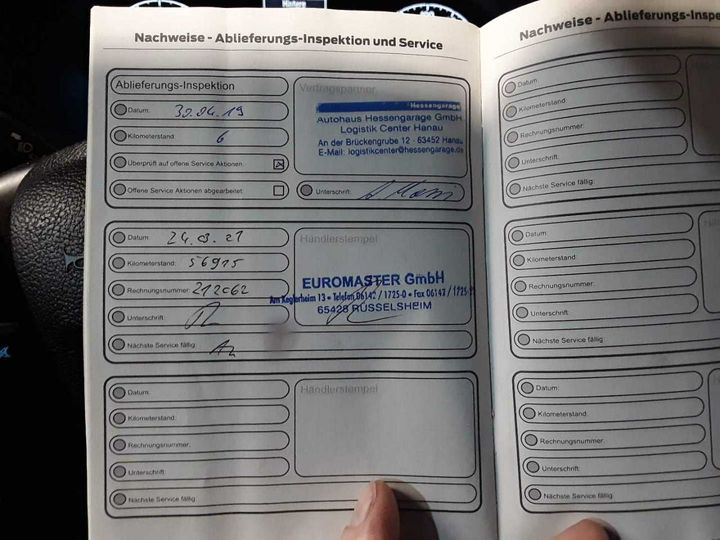 Hintere
Nachweise - Ablieferungs-Inspektion und Service
Ablieferungs-Inspektion
Datum: 30.04.19
Kilometerstand 6
Überprüft auf offene Service Aktionen.
Offene Service Aktionen abgearbeitet
Vertragspartner
Hessengarage
Autohaus Hessengarage GmbH
Logistik Center Hanau
An der Brückengrube 12 · 63452 Hanau
E-Mail: logistikcenter@hessengarage.de
Unterschrift:
Datum:
Kilometerstand: 56915
Rechnungsnummer: 212062
Unterschrift:
Nächste Service fällig
Händlerstempel
EUROMASTER GmbH
13 • Telefon 06142 / 1725-0 • Fax
65428 RÜSSELSHEIM
Datum:
Kilometerstand:
Rechnungsnummer:
Unterschrift:
Nächste Service fällig
Händlerstempel
Nachweise - Ablieferungs-Inspe
Datum
Kilometerstand:
Rechnungsnummer:
Unterschrift:
Nächste Service fällig:
Datum:
Kilometerstand:
Rechnungsnummer:
Unterschrift:
Nächste Service fällig:
Datum:
Kilometerstand:
Rechnungsnummer:
Unterschrift:
Nächste Service fällig